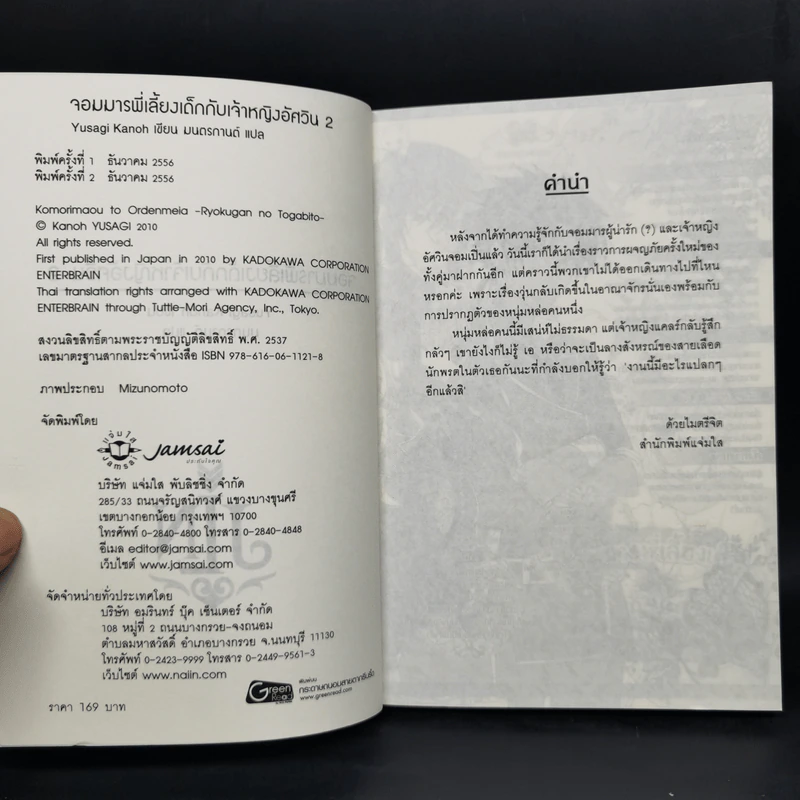 จอมมารพี่เลี้ยงเด็กกับเจ้าหญิงอัศวิน 2
Yusagi Kanoh เขียน มนตรกานต์ แปล
พิมพ์ครั้งที่ 1 ธันวาคม 2556
พิมพ์ครั้งที่ 2 ธันวาคม 2556
Komorimaou to Ordenmeia -Ryokugan no Togabito-
© Kanoh YUSAGI 2010
All rights reserved.
First published in Japan in 2010 by KADOKAWA CORPORATION
ENTERBRAIN
Thai translation rights arranged with KADOKAWA CORPORATION
ENTERBRAIN through Tuttle-Mori Agency, Inc., Tokyo.
สงวนลิขสิทธิ์ตามพระราชบัญญัติลิขสิทธิ์ พ.ศ. 2537
เลขมาตรฐานสากลประจำหนังสือ ISBN 978-616-06-1121-8
ภาพประกอบ Mizunomoto
จัดพิมพ์โดย
แจ่มใส
JAMSAI
Jamsai
ประทับใจคุณ
บริษัท แจ่มใส พับลิชชิ่ง จำกัด
285/33 ถนนจรัญสนิทวงศ์ แขวงบางขุนศรี
เขตบางกอกน้อย กรุงเทพฯ 10700
โทรศัพท์ 0-2840-4800 โทรสาร 0-2840-4848
อีเมล editor@jamsai.com
เว็บไซต์ www.jamsai.com
จัดจำหน่ายทั่วประเทศโดย
บริษัท อมรินทร์ บุ๊ค เซ็นเตอร์ จำกัด
108 หมู่ที่ 2 ถนนบางกรวย-จงถนอม
ตำบลมหาสวัสดิ์ อำเภอบางกรวย จ.นนทบุรี 11130
โทรศัพท์ 0-2423-9999 โทรสาร 0-2449-9561-3
เว็บไซต์ www.naiin.com
Green Read
พิมพ์บน
กระดาษถนอมสายตากรีนรี้ด
www.greenread.com
ราคา 169 บาท
คำนำ
หลังจากได้ทำความรู้จักกับจอมมารผู้น่ารัก (?) และเจ้าหญิง
อัศวินจอมเปิ่นแล้ว วันนี้เราก็ได้นำเรื่องราวการผจญภัยครั้งใหม่ของ
ทั้งคู่มาฝากกันอีก แต่คราวนี้พวกเขาไม่ได้ออกเดินทางไปที่ไหน
หรอกค่ะ เพราะเรื่องวุ่นกลับเกิดขึ้นในอาณาจักรนั่นเองพร้อมกับ
การปรากฏตัวของหนุ่มหล่อคนหนึ่ง
หนุ่มหล่อคนนี้มีเสน่ห์ไม่ธรรมดา แต่เจ้าหญิงแคลร์กลับรู้สึก
กลัวๆ เขายังไงก็ไม่รู้ เอ หรือว่าจะเป็นลางสังหรณ์ของสายเลือด
นักพรตในตัวเธอกันนะที่กำลังบอกให้รู้ว่า 'งานนี้มีอะไรแปลกๆ
อีกแล้วสิ'
ด้วยไมตรีจิต
สำนักพิมพ์แจ่มใส